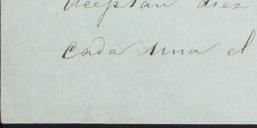 aceptan diez
cada una el